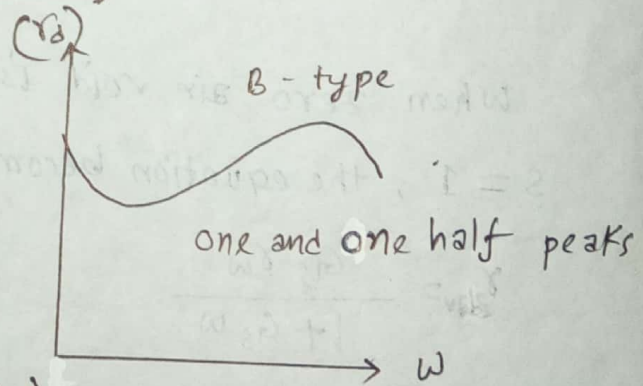 (γd)
B - type
one and one half peaks
w